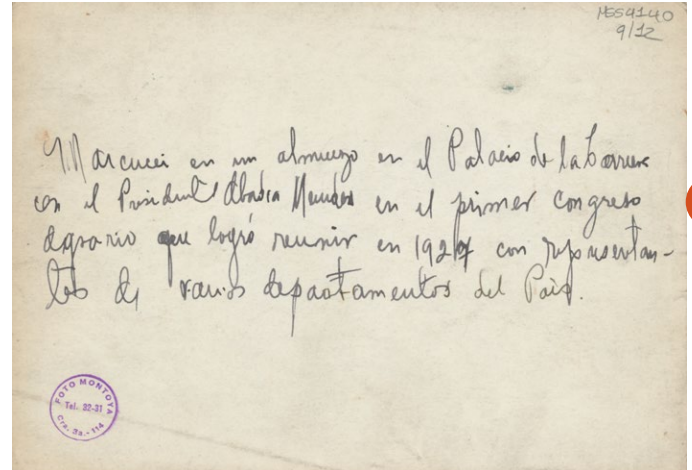 MSS9140
9/12
Marcucci en un almuerzo en el Palacio de la Carrera
con el Presidente Abadia Mendes en el primer congreso
agrario que logró reunir en 1927 con representan-
tes de varios departamentos del Pais.
FOTO MONTOYA
Tel. 22-31
Cra. 8a.-114